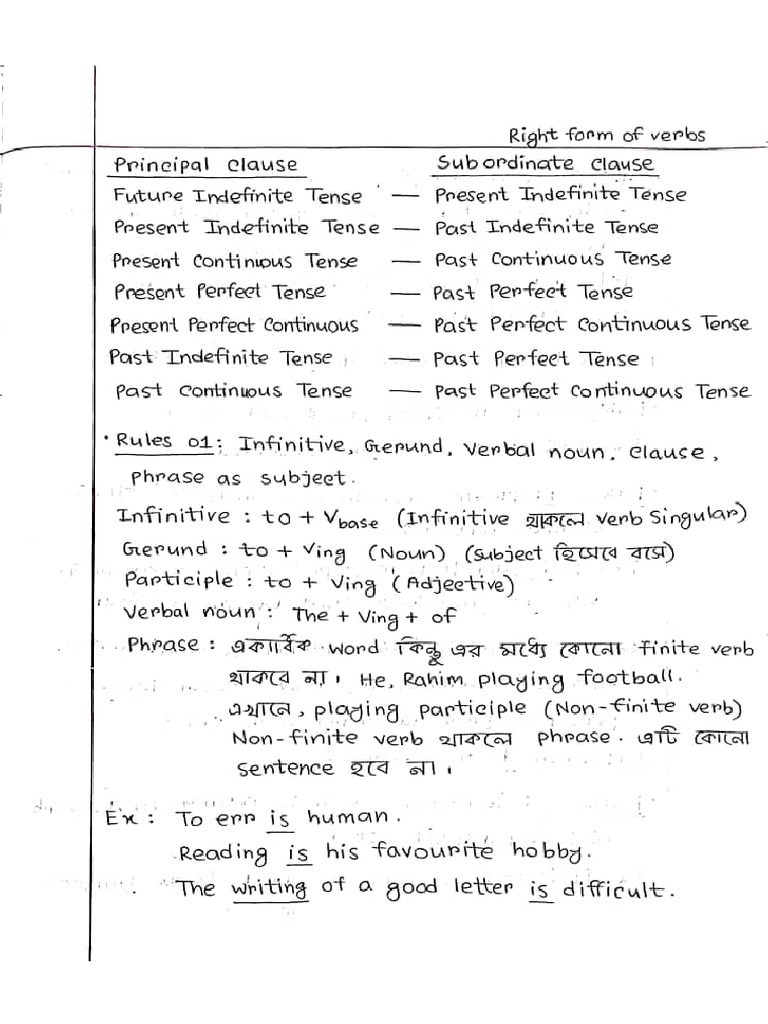 Right form of verbs
Principal clause Subordinate clause
Future Indefinite Tense — Present Indefinite Tense
Present Indefinite Tense — Past Indefinite Tense
Present Continuous Tense — Past Continuous Tense
Present Perfect Tense — Past Perfect Tense
Present Perfect Continuous — Past Perfect Continuous Tense
Past Indefinite Tense — Past Perfect Tense
Past Continuous Tense — Past Perfect Continuous Tense
• Rules 01: Infinitive, Gerund, Verbal noun, clause,
phrase as subject.
Infinitive : to + Vbase (Infinitive থাকলে verb Singular)
Gerund : to + Ving (Noun) (Subject হিসেবে বসে)
Participle : to + Ving (Adjective)
Verbal noun : The + Ving + of
Phrase : একাধিক word কিন্তু এর মধ্যে কোনো finite verb
থাকবে না। He, Rahim playing football.
এখানে, playing participle (Non-finite verb)
Non-finite verb থাকলে phrase. এটি কোনো
sentence হবে না।
Ex : To err is human.
Reading is his favourite hobby.
The writing of a good letter is difficult.